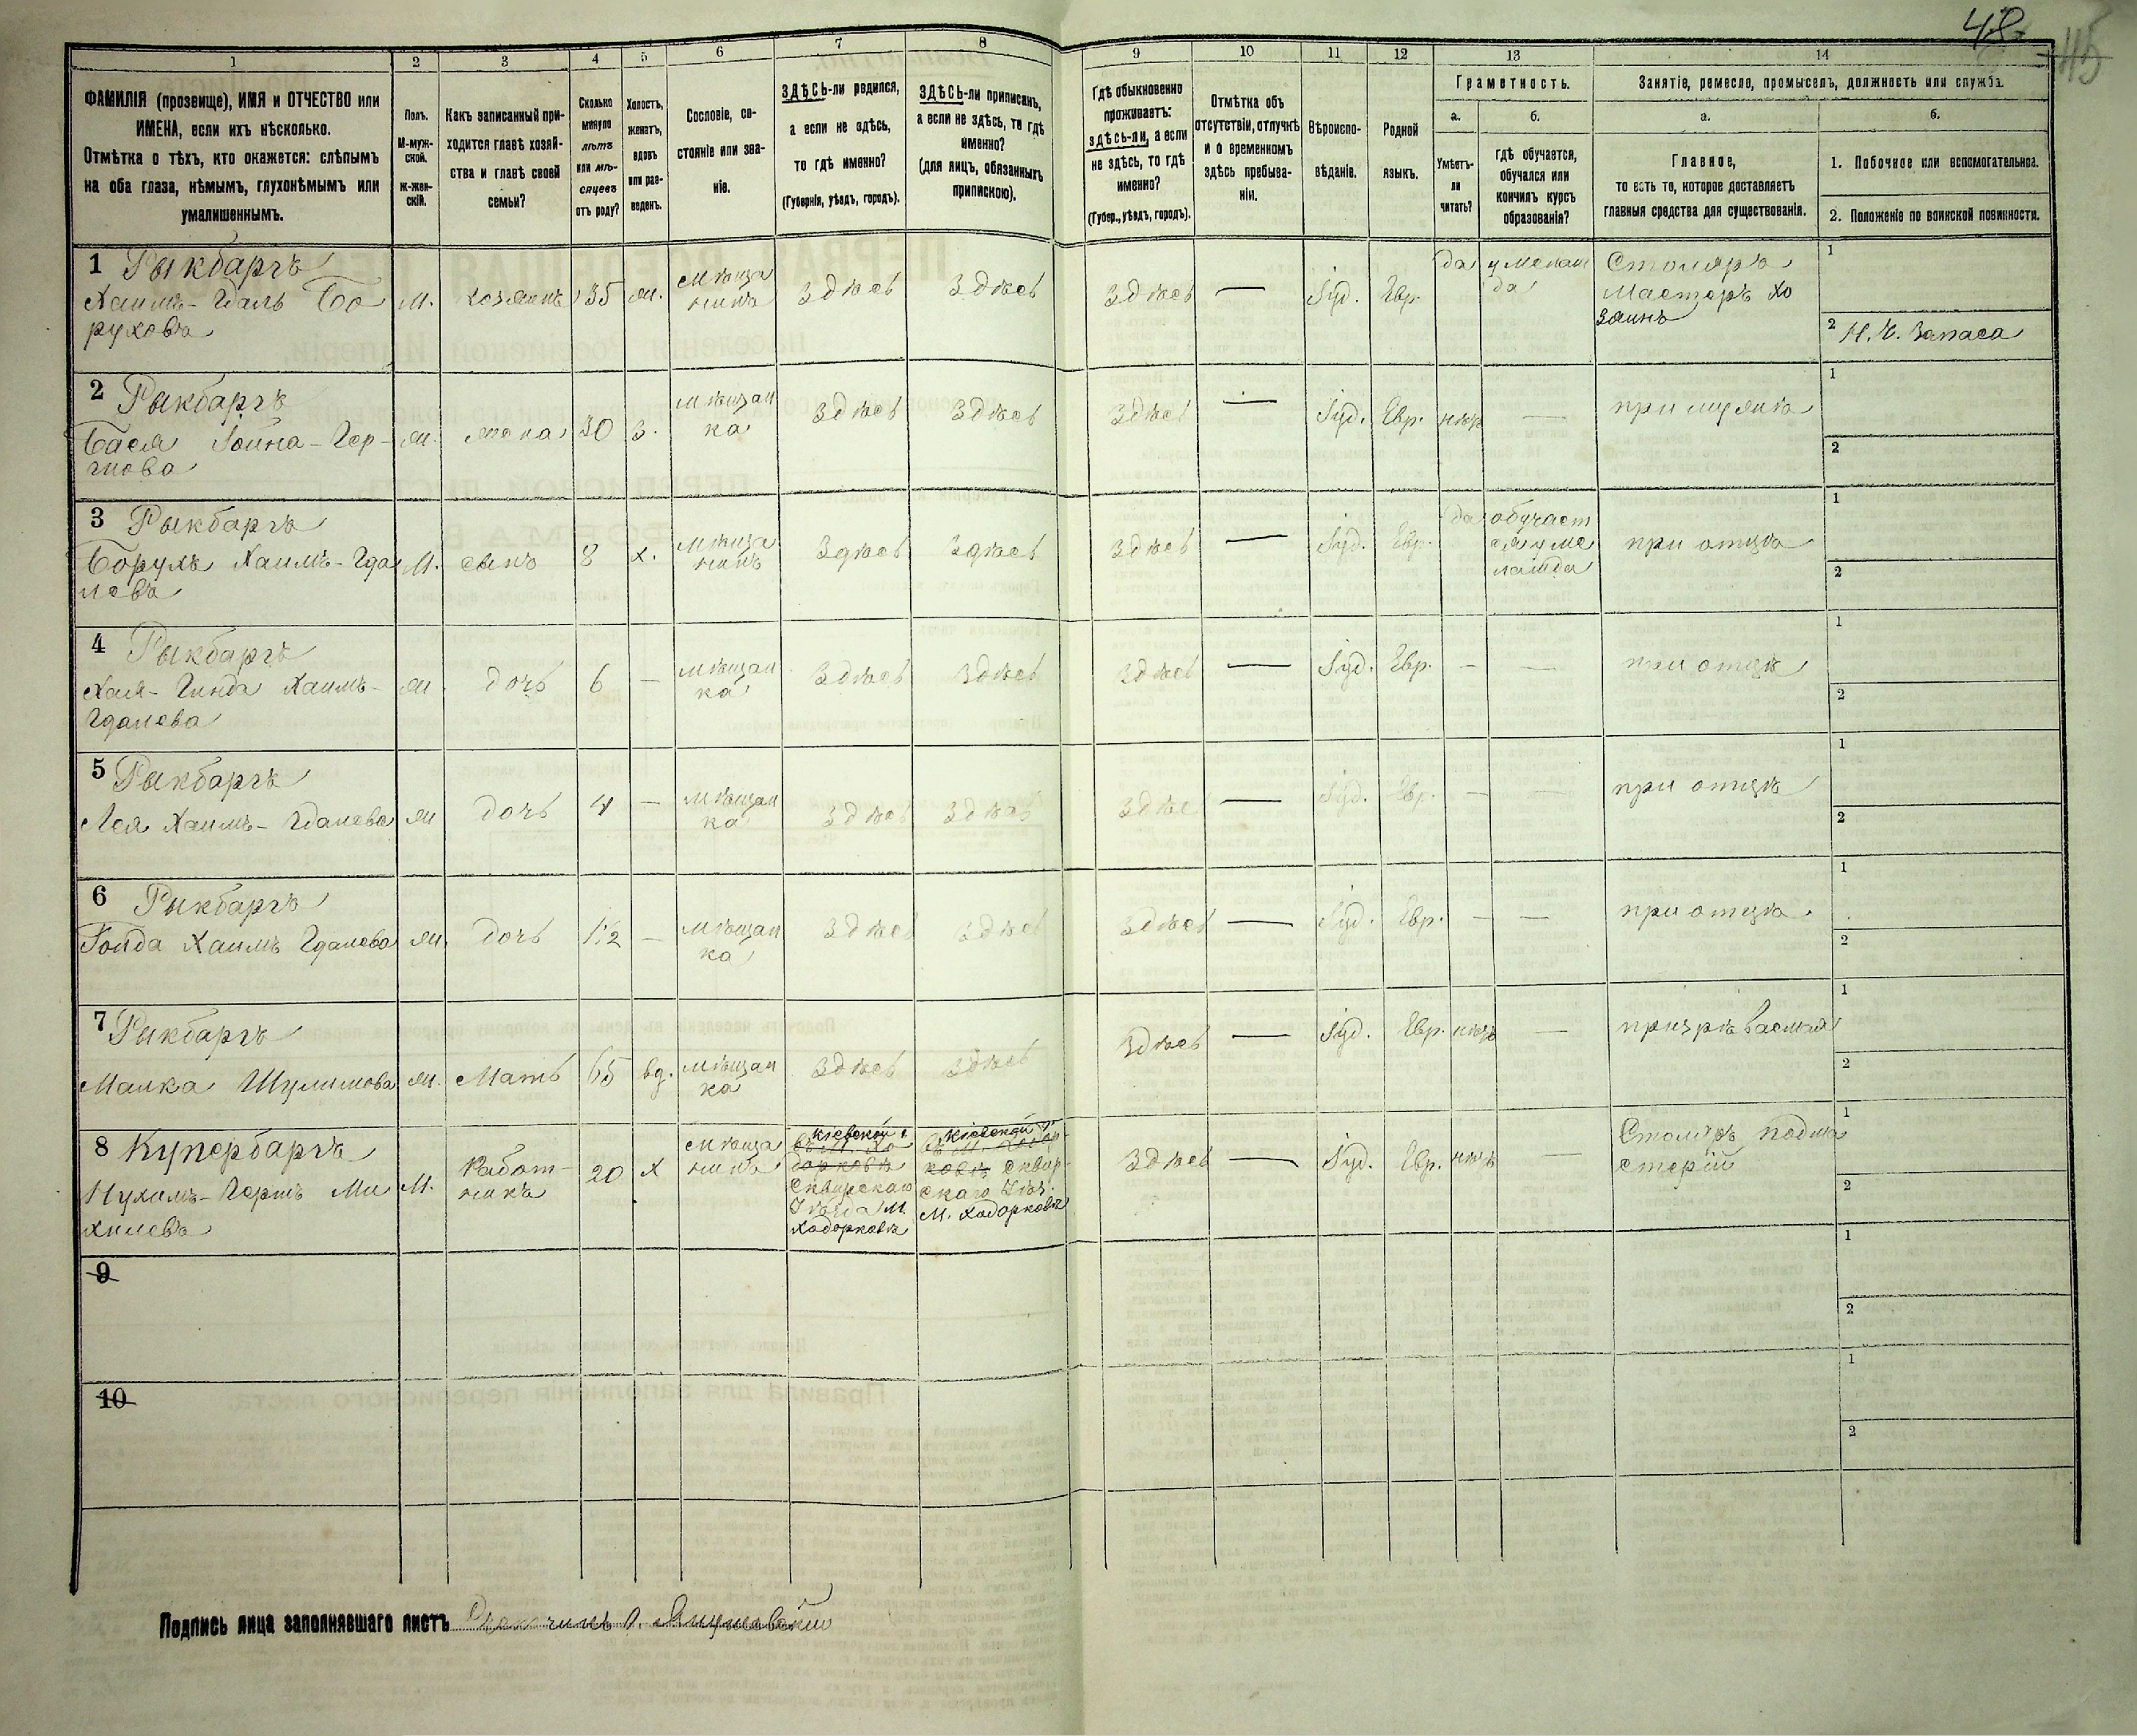 48.
45
1 2 3 4 5 6 7 8 9 10 11 12 13 14
ФАМИЛІЯ (прозвище), ИМЯ и ОТЧЕСТВО или
ИМЕНА, если ихъ нѣсколько.
Отмѣтка о тѣхъ, кто окажется: слѣпымъ
на оба глаза, нѣмымъ, глухонѣмымъ или
умалишеннымъ.
Полъ.
М-муж-
ской.
Ж-жен-
скій.
Какъ записанный при-
ходится главѣ хозяй-
ства и главѣ своей
семьи?
Сколько
минуло
лѣтъ
или мѣ-
сяцевъ
отъ роду?
Холостъ,
женатъ,
вдовъ
или раз-
веденъ.
Сословіе, со-
стояніе или зва-
ніе.
ЗДѢСЬ-ли родился,
а если не здѣсь,
то гдѣ именно?
(Губернія, уѣздъ, городъ).
ЗДѢСЬ-ли приписанъ,
а если не здѣсь, то гдѣ
именно?
(для лицъ, обязанныхъ
припискою).
Гдѣ обыкновенно
проживаетъ:
здѣсь-ли, а если
не здѣсь, то гдѣ
именно?
(Губер., уѣздъ, городъ).
Отмѣтка объ
отсутствіи, отлучкѣ
и о временномъ
здѣсь пребыва-
ніи.
Вѣроиспо-
вѣданіе.
Родной
языкъ.
Грамотность.
а.
Умѣетъ-
ли
читать?
б.
гдѣ обучается,
обучался или
кончилъ курсъ
образованія?
Занятіе, ремесло, промыселъ, должность или служба.
а.
Главное,
то есть то, которое доставляетъ
главныя средства для существованія.
б.
1. Побочное или вспомогательное.
2. Положеніе по воинской повинности.
1 Рыкбаргъ
Хаимъ-Гдаль Бо
руховъ
М. хозяинъ 35 ж. Мѣща
нинъ
Здѣсь Здѣсь Здѣсь — Іуд. Евр. да у мелам
да
Столяръ
Мастеръ хо
зяинъ
1
2 Н. Ч. Запаса
2 Рыкбаргъ
Бася Гер-
шова
ж. жена 30 З. Мѣщан
ка
Здѣсь Здѣсь Здѣсь — Іуд. Евр. нѣтъ — при мужѣ
1
2
3 Рыкбаргъ
Борухъ Хаимъ-Гда
левъ
М. сынъ 8 х. Мѣща
нинъ
Здѣсь Здѣсь Здѣсь — Іуд. Евр. да обучает
ся у ме
ламда
при отцѣ
1
2
4 Рыкбаргъ
Хая-Гинда Хаимъ-
Гдалева
ж. дочь 6 — Мѣщан
ка
Здѣсь Здѣсь Здѣсь — Іуд. Евр. — — при отцѣ
1
2
5 Рыкбаргъ
Лея Хаимъ-Гдалева
ж дочь 4 — Мѣщан
ка
Здѣсь Здѣсь Здѣс — Іуд. Евр. — — при отцѣ
1
2
6 Рыкбаргъ
Хаимъ Гдалева
ж. дочь 1½ — Мѣщан
ка
Здѣсь Здѣсь Здѣсь — Іуд. Евр. — — при отцѣ
1
2
7 Рыкбаргъ
Малка Шулимова
ж. Мать 65 вд. Мѣщан
ка
Здѣсь Здѣсь Здѣсь — Іуд. Евр. нѣтъ — призрѣваемая
1
2
8 Купербаргъ
Нухимъ-Гершъ Ми
хилевъ
М. Работ-
никъ
20 х Мѣща
нинъ
Кіевской г.
въ М. Хо
дорковѣ
Сквирскаго
Уѣзда М.
Ходорковѣ
Кіевской г.
въ М. Ходор-
ковѣ Сквир-
скаго Уѣз.
М. Ходорковѣ
Здѣсь — Іуд. Евр. нѣтъ — Столяръ подма
стерій
1
2
9
1
2
10
1
2
Подпись лица заполнявшаго листъ